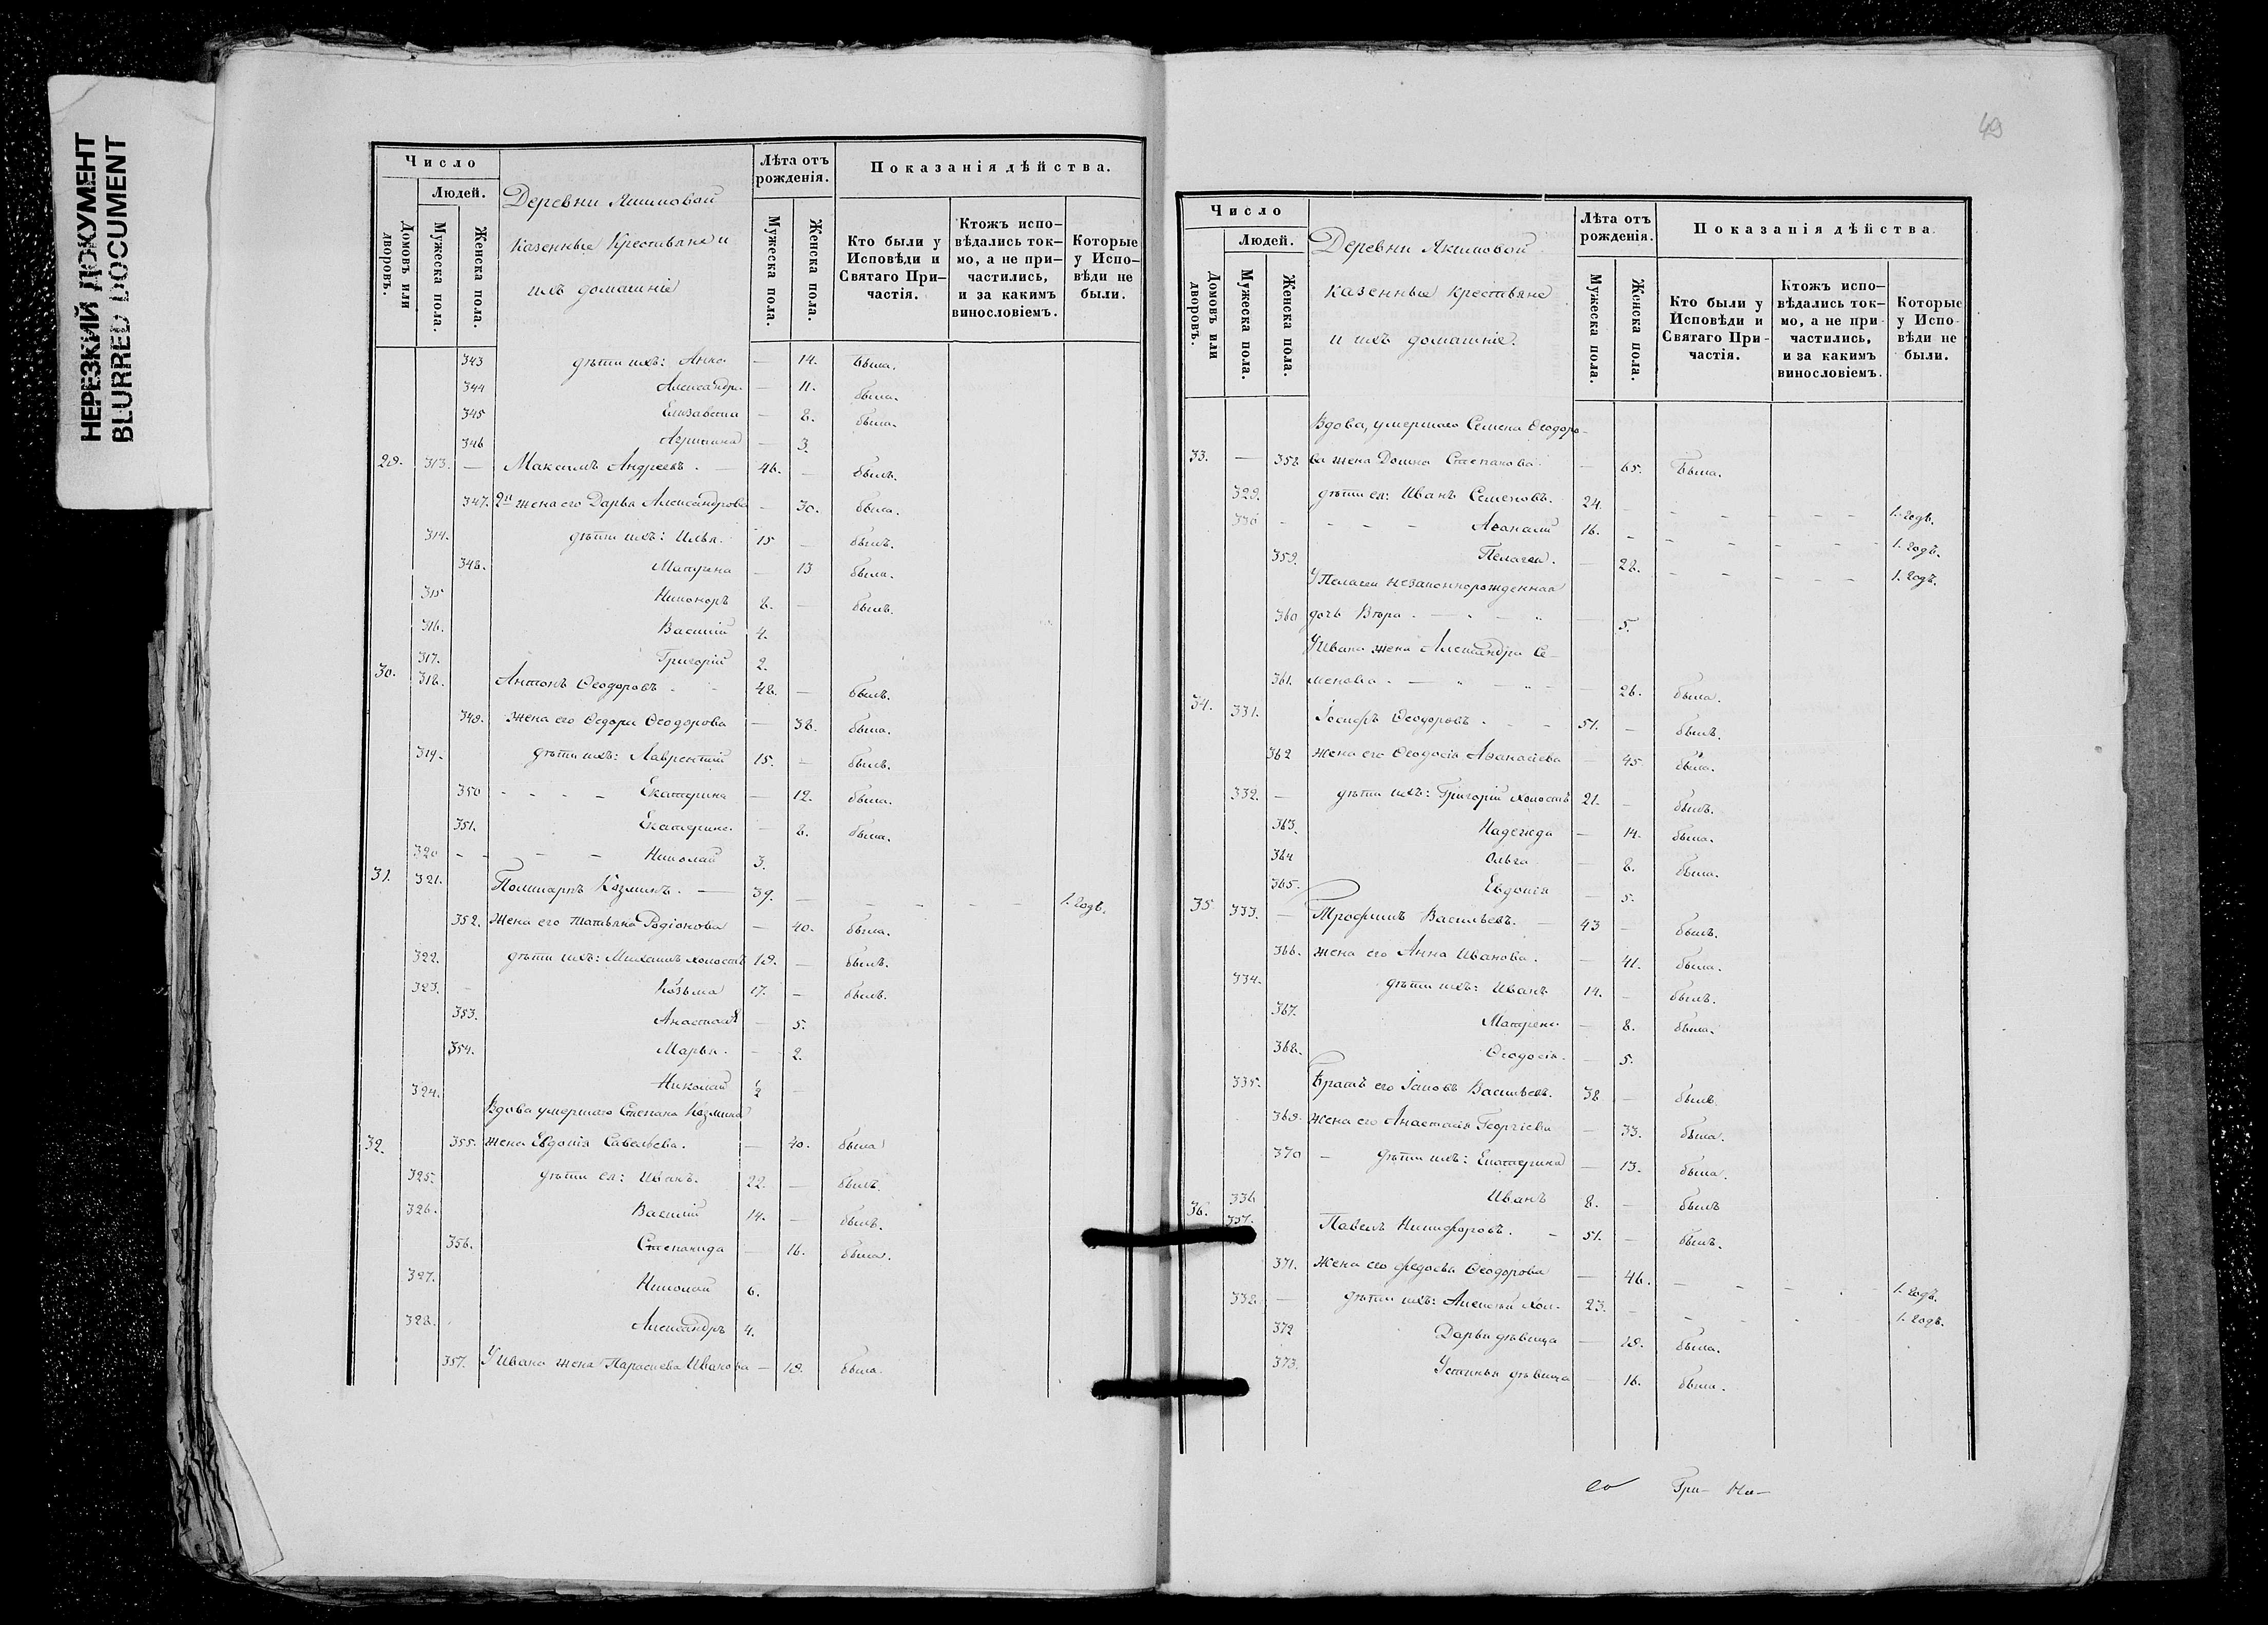 НЕРЕЗКИЙ ДОКУМЕНТ
BLURRED DOCUMENT
Число
Людей.
Домовъ или дворовъ.
Мужеска пола.
Женска пола.
Деревни Якимовой
казенные Крестьяне и
ихъ домашніе
Лѣта отъ рожденія.
Мужеска пола.
Женска пола.
Показанія дѣйства.
Кто были у Исповѣди и Святаго При-частія.
Ктожъ испо-вѣдались ток-мо, а не при-частились, и за какимъ винословіемъ.
Которые у Испо-вѣди не были.
343 дѣти ихъ: Анна — 14. была.
344 Александра — 11. была.
345 Елизавета — 8. была.
346 — 3.
29. 313. — Максимъ Андреевъ. — 46. — былъ.
347. 2я жена его Дарья Александрова — 30. была.
314. дѣти ихъ: Илья. 15 — былъ.
348. Матрена — 13 была.
315 Никоноръ 8. — былъ.
316. Василій 4.
317. Григорій 2.
30. 318. Антонъ Ѳеодоровъ - - 48. — былъ.
349. жена его Ѳедора Ѳеодорова — 38. была.
319. дѣти ихъ: Лаврентій 15. — былъ.
350 - - - - Екатерина — 12. была.
351. Екатерина. — 8. была.
320 - - - - Николай 3.
31. 321. Поликарпъ Козминъ. — 39. — - - - - 1. годъ.
352. Жена его Татьяна Родіонова — 40. была.
322. дѣти ихъ: Михаилъ холостъ 19. — былъ.
323. - Козьма 17. — былъ.
353. Анастасія — 5.
354. Марья. — 2.
324. Николай 1/2 —
Вдова умершаго Степана Козмина
32. 355. жена Евдокія Савельева. — 40. была
325. дѣти ея: Иванъ. 22. — былъ.
326. Василій 14. — былъ.
356. Степанида — 16. была.
327. Николай 6.
328. Александръ 4.
357. У Ивана жена Параскева Иванова — 19. была.
49
Число
Людей.
Домовъ или дворовъ.
Мужеска пола.
Женска пола.
Деревни Якимовой
казенные крестьяне
и ихъ домашніе.
Лѣта отъ рожденія.
Мужеска пола.
Женска пола.
Показанія дѣйства.
Кто были у Исповѣди и Святаго При-частія.
Ктожъ испо-вѣдались ток-мо, а не при-частились, и за какимъ винословіемъ.
Которые у Испо-вѣди не были.
Вдова, умершаго Семена Ѳеодоро-
33. — 358 ва жена Домна Степанова. — 65. была.
329. дѣти ея: Иванъ Семеновъ. 24. - - - - - 1. годъ.
330 - - - - Аѳанасій 16. - - - - - 1. годъ.
359. Пелагея. — 28. - - - - 1. годъ.
У Пелагеи незаконнорожденная
360 дочь Вѣра. — 5.
У Ивана жена Александра Се-
361. менова. — 26. была.
34. 331. Іосифъ Ѳеодоровъ. - - 51. — былъ.
362 жена его Ѳеодосія Аѳанасіева — 45 была.
332. — дѣти ихъ: Григорій холостъ 21. — былъ.
363. Надежда — 14. была.
364 Ольга — 8. была.
365. Евдокія — 5.
35 333. — Трофимъ Васильевъ. — 43 — былъ.
366. жена его Анна Иванова. — 41. была.
334. дѣти ихъ: Иванъ 14. — былъ.
367. Матрена — 8. была.
368. Ѳеодосія — 5.
335. Братъ его Іаковъ Васильевъ. 38 — былъ.
369. жена его Анастасія Георгіева — 33. была.
370 - дѣти ихъ: Екатерина — 13. была.
336 Иванъ 8. — былъ
36. 337. Павелъ Никифоровъ. - 51. — былъ.
371. Жена его Федосья Ѳеодорова — 46. - - - - 1. годъ.
338. — дѣти ихъ: Алексѣй хол. 23. - - - - 1. годъ.
372 Дарья дѣвица — 19. была.
373. Устинья дѣвица — 16. была.
Гри- На-